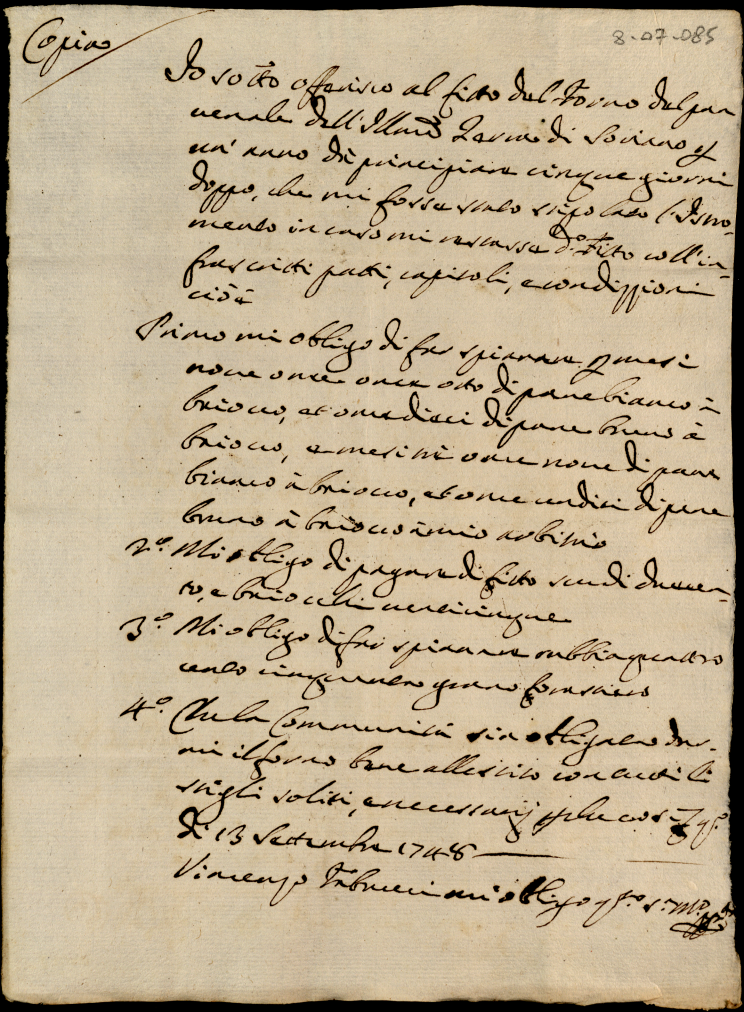 8-07-085
Copia
Io sotto offerisco al fitto del Forno del pan
venale dell'Illmo di Soriano p
un' anno dà principiare cinque giorni
doppo, che mi fosse stato stipolato l'Istro-
mento in caso mi restasse do. Fitto coll'in-
frascritti patti, capitoli, e condizzioni
cioè
Primo mi obligo di far spianare p mesi
nove once once otto di pane bianco à
baiocco, et once dieci di pane bruno à
baiocco, e mesi trè once nove di pane
bianco à baiocco, et once undici di pane
bruno à baiocco à mio arbitrio
2o. Mi obligo di pagare di fitto scudi duecen-
to, e baiocchi venticinque
3o. Mi obligo di far spianare rubbia quattro
cento cinquanta grano forastiero
4o. Che la Communità sia obligata dar-
mi il forno bene allestito con tutti li
stigli soliti, e necessarij
di 13 Settembre 1748
Vincenzo Fabrucci mi obligo